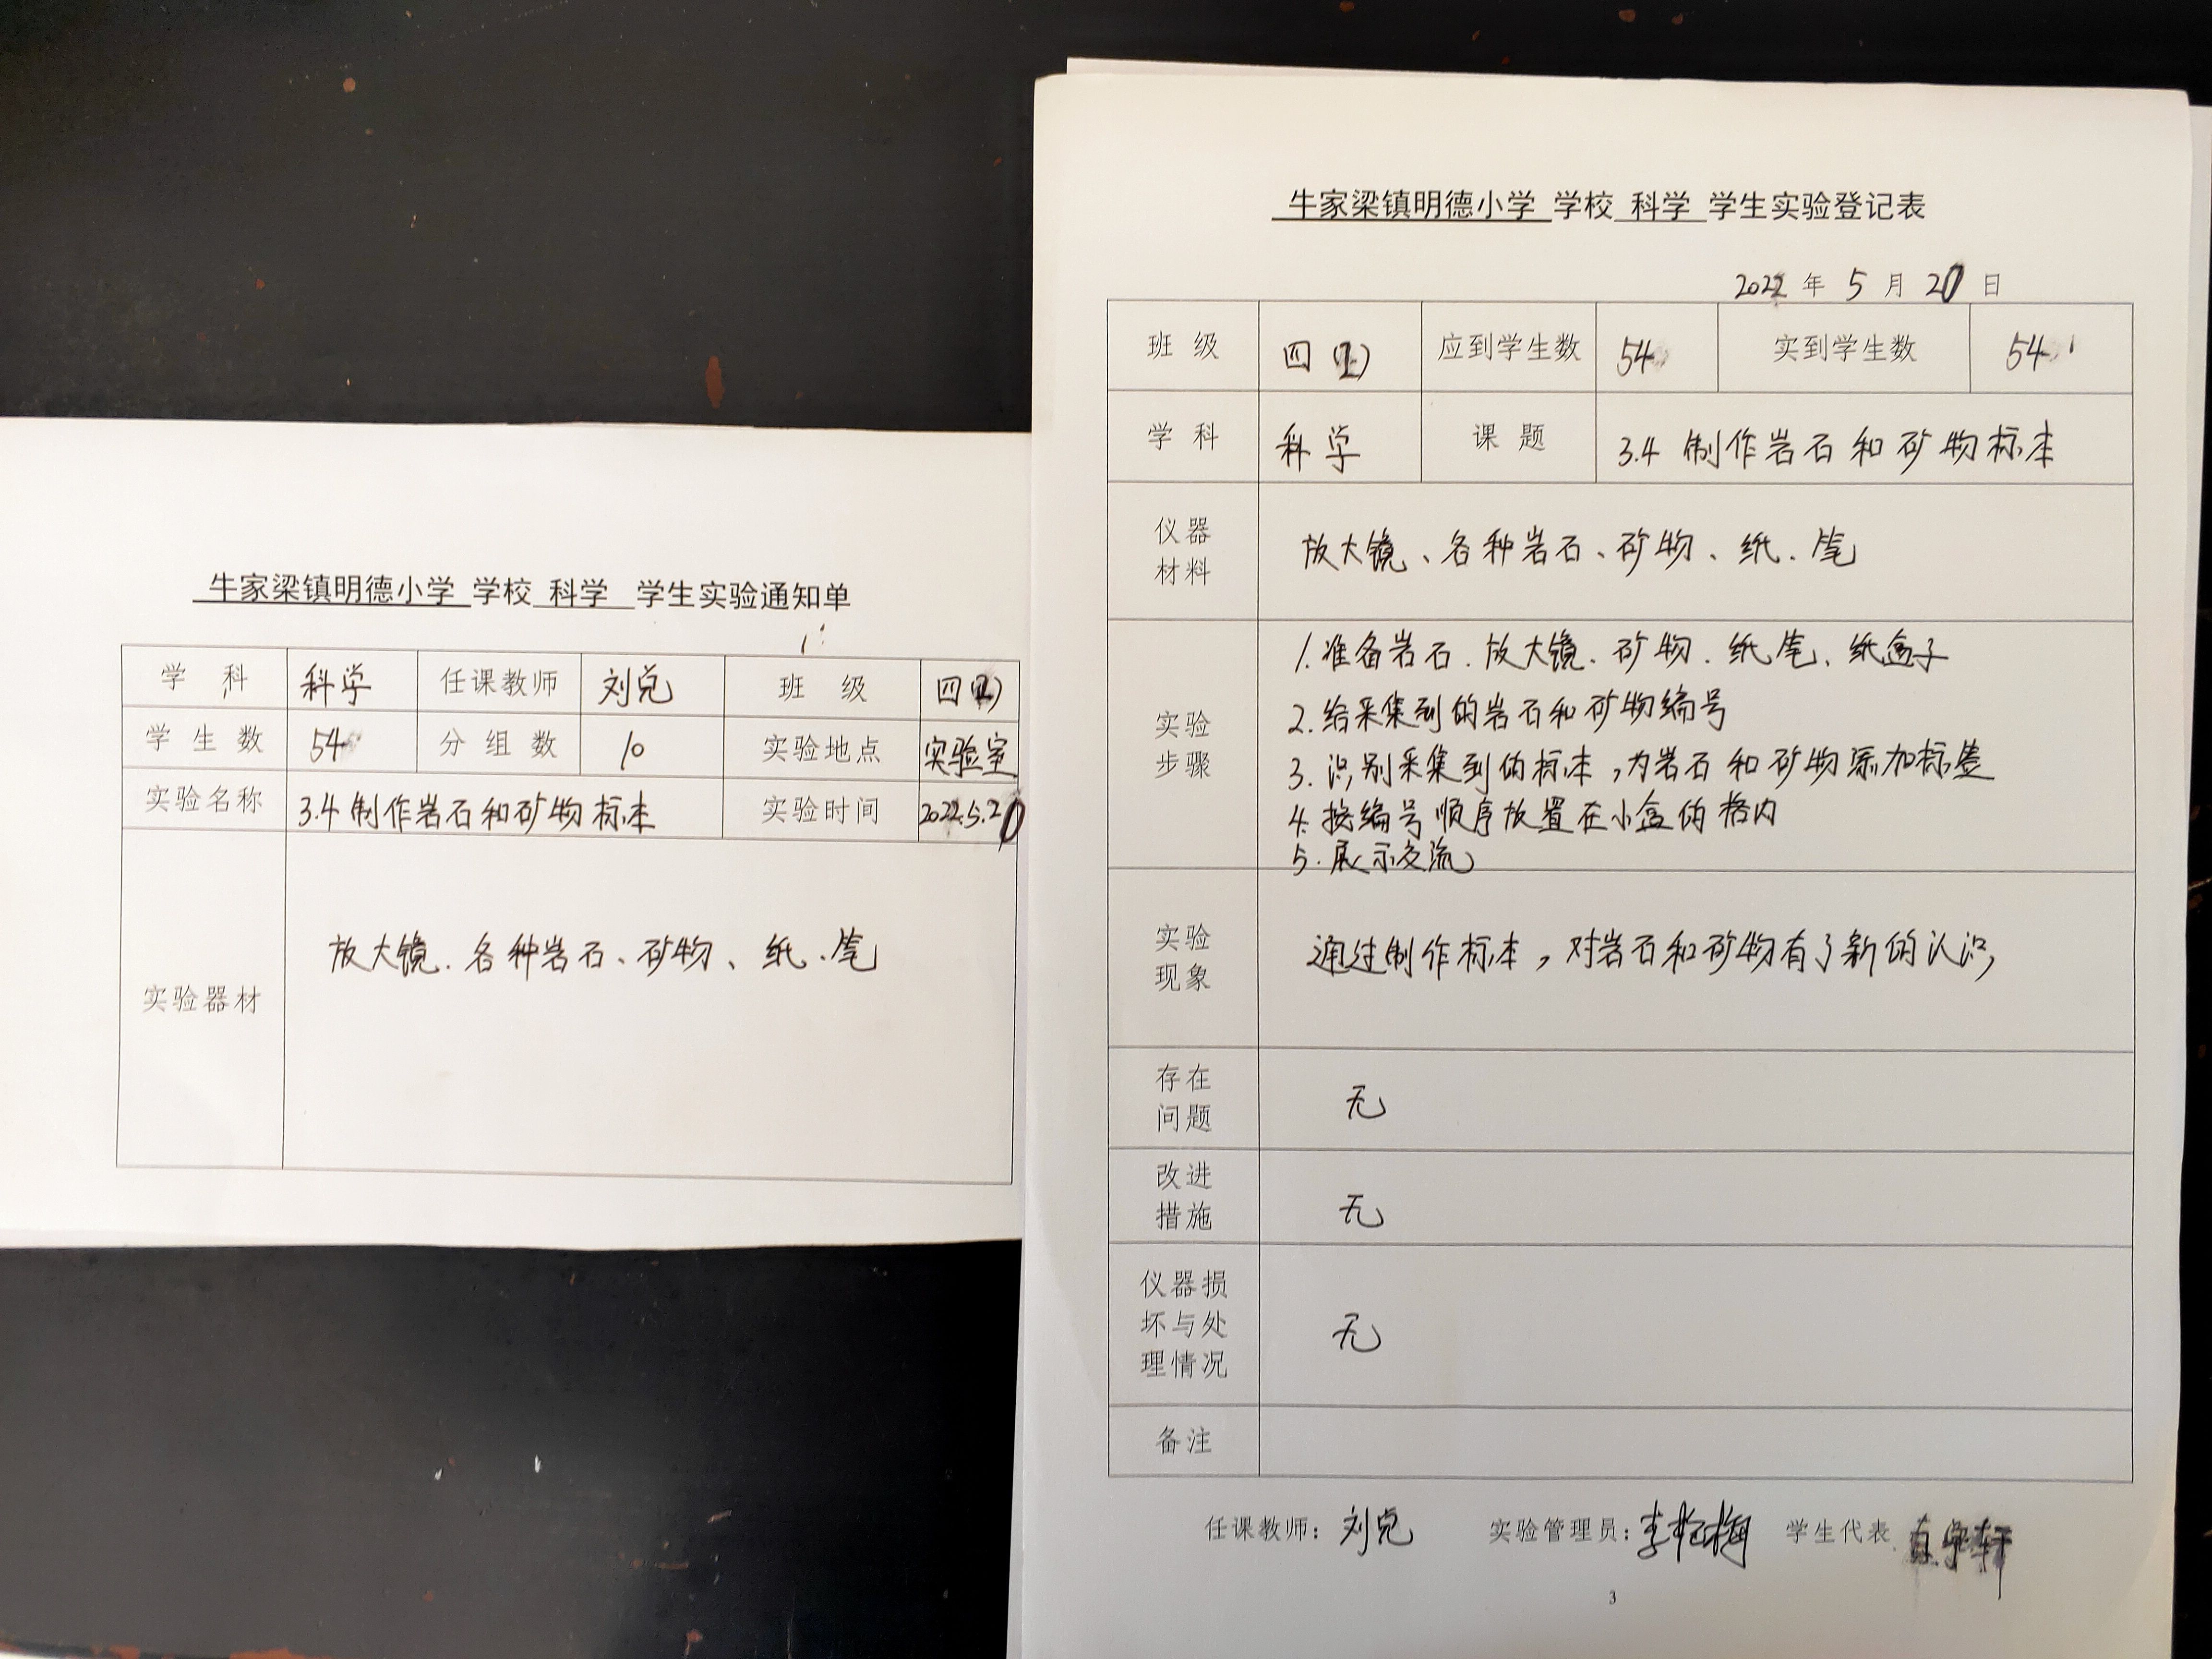 牛家梁镇明德小学 学校 科学 学生实验通知单
学 科 科学 任课教师 刘兑 班 级 四
学生数 54 分组数 10 实验地点 实验室
实验名称 3.4 制作岩石和矿物标本 实验时间 2022.5.20
实验器材 放大镜、各种岩石、矿物、纸、笔
牛家梁镇明德小学 学校 科学 学生实验登记表
2022 年 5 月 20 日
班 级 四 应到学生数 54 实到学生数 54
学 科 科学 课 题 3.4 制作岩石和矿物标本
仪器
材料
放大镜、各种岩石、矿物、纸、笔
实验
步骤
1.准备岩石、放大镜、矿物、纸笔、纸盒子
2.给采集到的岩石和矿物编号
3.识别采集到的标本,为岩石和矿物添加标签
4.按编号顺序放置在小盒的格内
5.展示交流
实验
现象
通过制作标本,对岩石和矿物有了新的认识,
存在
问题
无
改进
措施
无
仪器损
坏与处
理情况
无
备注
任课教师: 刘兑 实验管理员: 学生代表
3